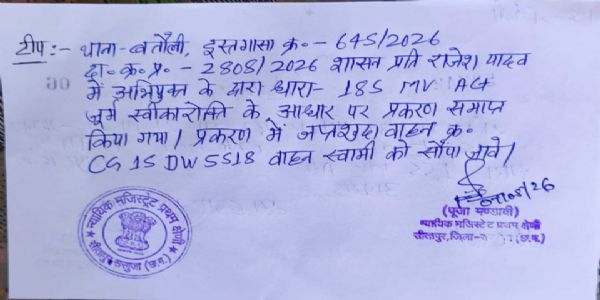 टीप:- थाना-बतौली, इस्तगासा क्र.- 645/2026
दा.क्र.प्र.- 2808/2026 शासन प्रति राजेश यादव
में अभियुक्त के द्वारा धारा- 185 MV Act
जुर्म स्वीकारोक्ति के आधार पर प्रकरण समाप्त
किया गया। प्रकरण में जप्तशुदा वाहन क्र.
CG 15 DW 5518 वाहन स्वामी को सौंपा जावे।
(पूजा मण्डावी)
न्यायिक मजिस्ट्रेट प्रथम श्रेणी
सीतापुर, जिला- (छ.ग.)
न्यायिक मजिस्ट्रेट प्रथम श्रेणी
सीतापुर सरगुजा (छ.ग.)